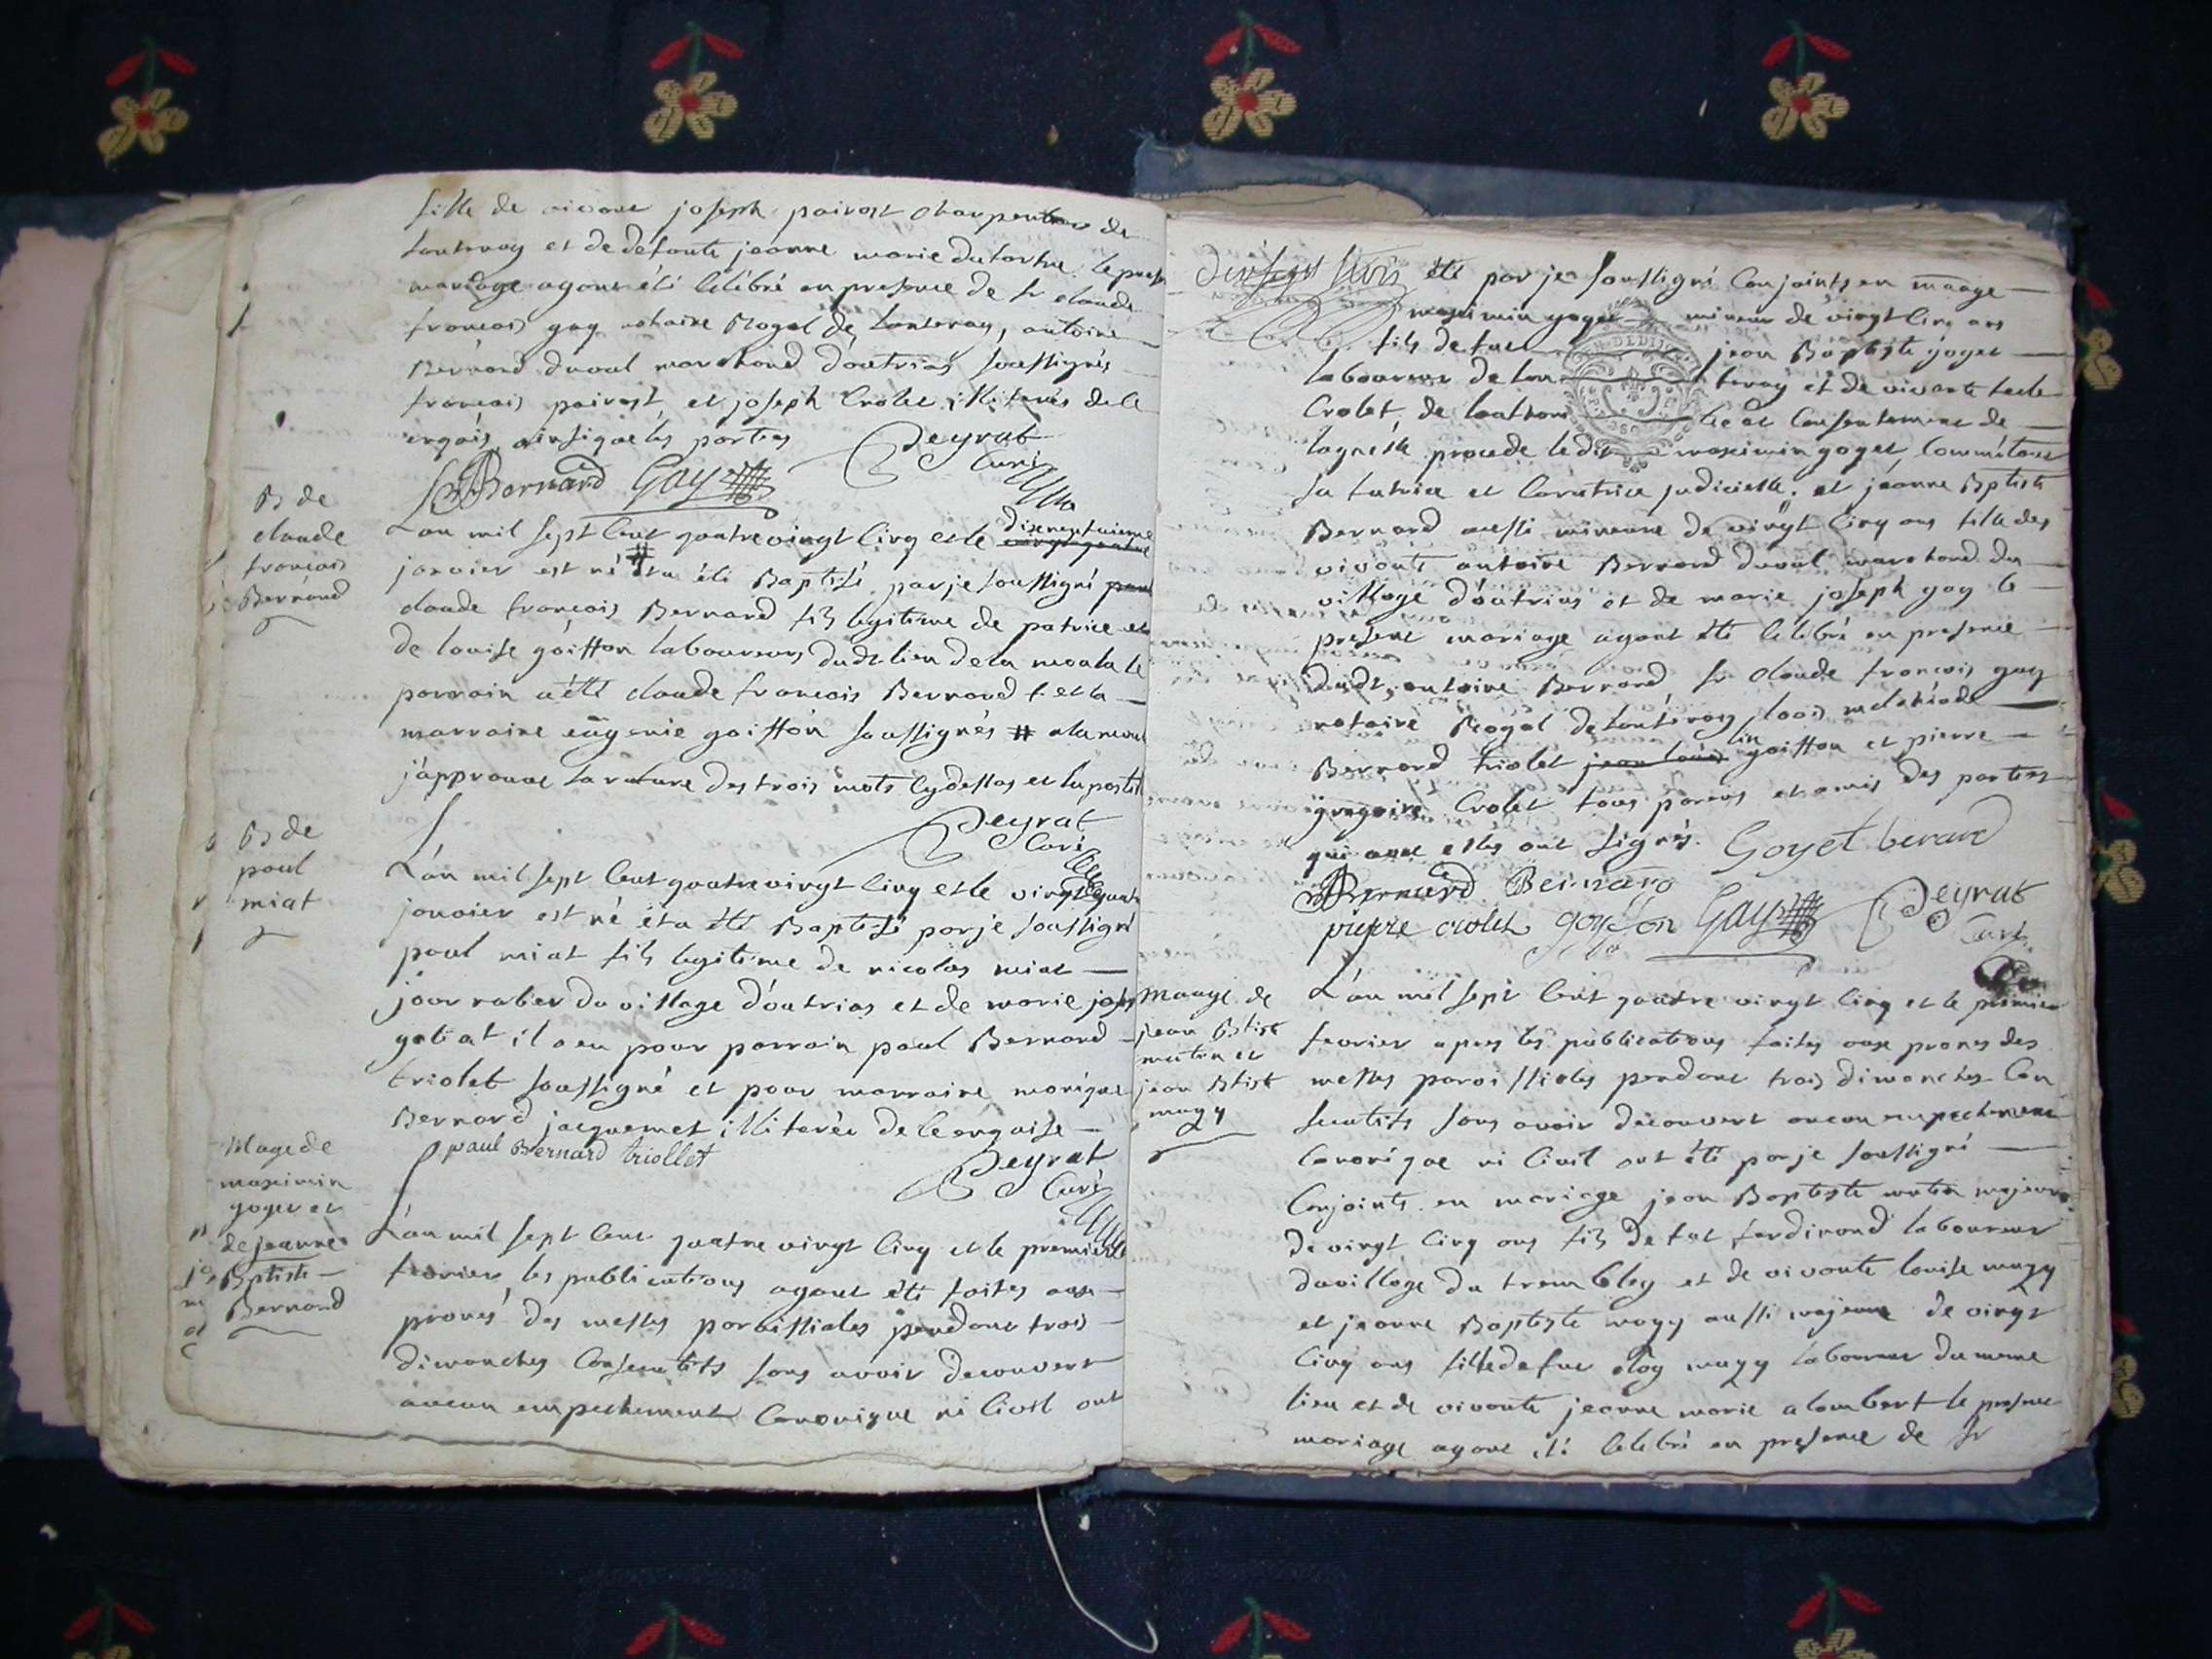 fille de vivant joseph pairast charpentier de
lantenay et de defunte jeanne marie dutartre le presen
mariage ayant été célébré en presence de sr claude
francois gay notaire Royal de lantenay, antoine
Bernard duval marchand d'outrias soussignés
francois pairast et joseph Crolet illiterés de ce
enquis, ainsi que les parties
Peyrat
Curé
Bernard Gay
B de
claude
francois
Bernard
L'an mil sept cent quatre vingt cinq et le dixneuvieme
janvier est né # et a été Baptisé par je soussigné
claude francois Bernard fils legitime de patrice et
de louise goiffon laboureurs dudt lieu de la
parrain a été claude francois Bernard f et la
marraine eugenie goiffon soussignés #
j'approuve la rature des trois mots cy dessus et
Peyrat
Curé
B de
paul
miat
L'an mil sept cent quatre vingt cinq et le vingt
janvier est né et a été Baptisé par je soussigné
paul miat fils legitime de nicolas miat
journalier du village d'outrias et de marie
il a eu pour parrain paul Bernard
triolet soussigné et pour marraine
Bernard jacquemet illiterée de ce enquise
paul Bernard triollet
Peyrat
Curé
Mage de
maximin
goyet et
de jeanne
Bptiste
Bernard
L'an mil sept cent quatre vingt cinq et le premier
fevrier, les publications ayant été faites aux
prones des messes paroissiales pendant trois
dimanches consecutifs sans avoir decouvert
aucun empechement canonique ni civil ont
été par je soussigné conjoints en maage
maximin goyet mineur de vingt cinq ans
fils de fut jean Baptiste goyet
laboureur de lantenay et de vivante
Crolet, de l'authorité et consentement de
laquelle procede ledit maximin goyet, comme étant
sa tutrice et curatrice judicielle. et jeanne Bptiste
Bernard aussi mineure de vingt cinq ans fille des
vivants antoine Bernard duval marchand du
village d'outrias et de marie joseph gay le
present mariage ayant été celebré en presence
dudt, antoine Bernard, sr claude francois gay
notaire Royal de lantenay, louis
Bernard triolet jean louis goiffon et pierre
gregoire Crolet tous parens et amis des parties
qui avec elles ont signés. Goyet berard
Bernard Bernard
Peyrat
Curé
pierre crolet goyffon Gay
Maage de
jean Btiste
mutin et
jean Btiste
mugy
L'an mil sept cent quatre vingt cinq et le premier
fevrier apres les publications faites aux prones des
messes paroissiales pendant trois dimanches con
secutifs sans avoir decouvert aucun empechement
canonique ni civil ont été par je soussigné
conjoints en mariage jean Baptiste mutin majeur
de vingt cinq ans fils de fut ferdinand laboureur
du village du trembley et de vivante louise mugy
et jeanne Baptiste mugy aussi majeure de vingt
cinq ans fille de fut eloy mugy laboureur du meme
lieu et de vivante jeanne marie alombert le present
mariage ayant été celebré en presence de sr